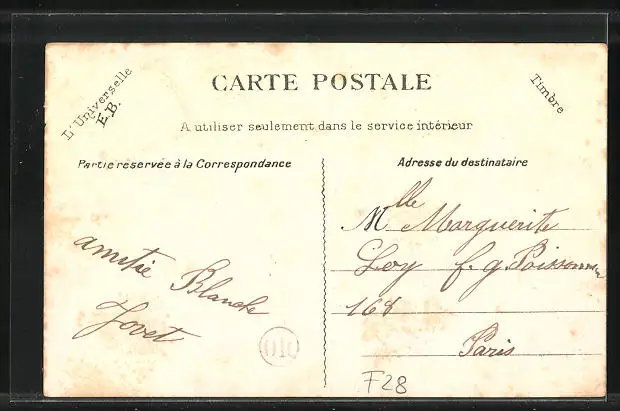 L'Universelle
E.B.
CARTE POSTALE
Timbre
A utiliser seulement dans le service intérieur
Partie réservée à la Correspondance
Adresse du destinataire
amitié Blanche
Jovet
Mlle Marguerite
Loy f. g Poissonnière
168
Paris
010
F28